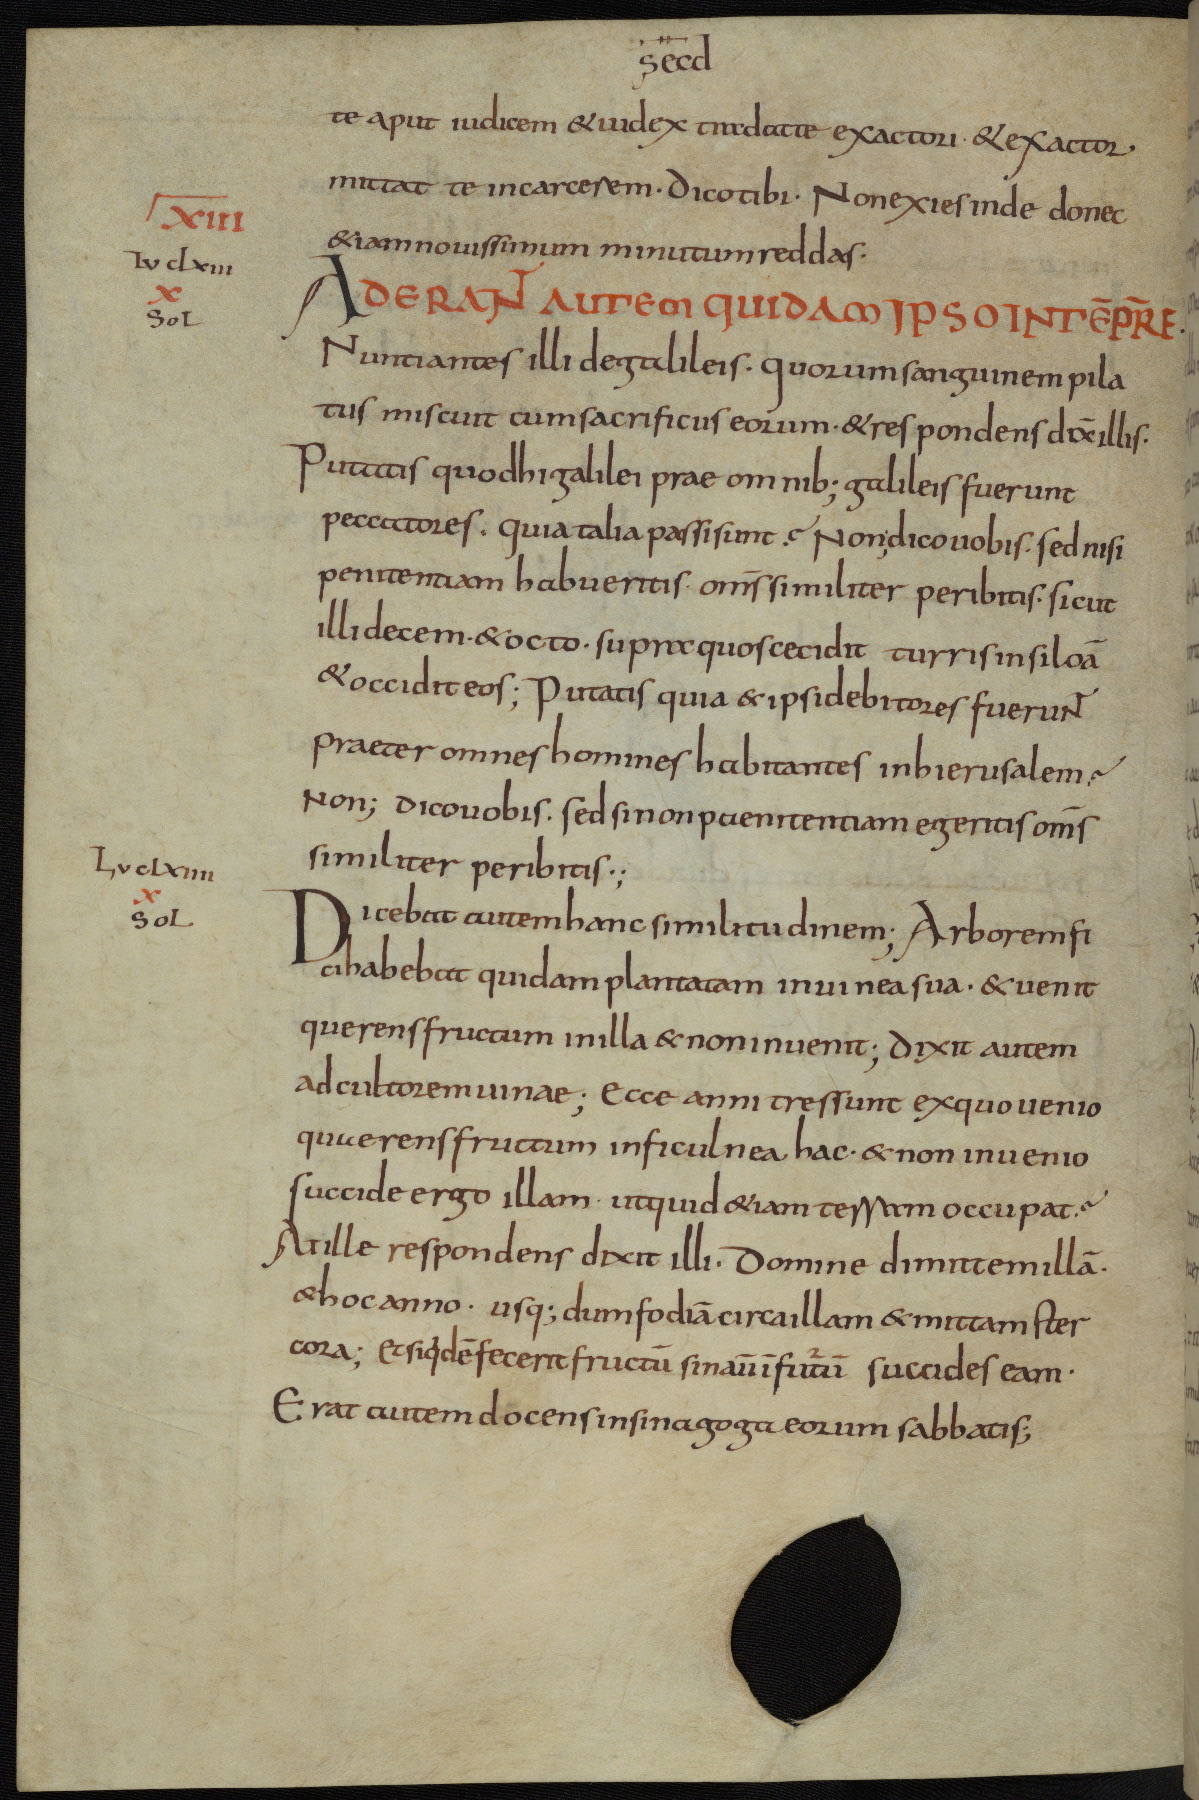 secd
te aput iudicem & iudex tradat te exactori · & exactor
mittat te incarcerem · Dico tibi · Non exies inde donec
&iam nouissimum minutum reddas ·
XIII
Lu clxiii
X
SOL
ADERANT AUTEM QUIDAM IPSO IN TĒPR̄E ·
Nuntiantes illi degalileis · quorum sanguinem pila
tus miscuit cum sacrificiis eorum · & respondens dix̄ illis ·
Putatis quod hi galilei prae omnib; galileis fuerunt
peccatores · quia talia passi sunt ? Non; dico uobis · sed nisi
penitentiam habueritis · om̄s similiter peribitis · sicut
illi decem · & octo · supra quos cecidit turris in siloā
& occidit eos; Putatis quia & ipsi debitores fuerunt
praeter omnes homines habitantes in hierusalem ?
Non; dico uobis · sed si non paenitentiam egeritis om̄s
similiter peribitis ·;
Lu clxiiii
X
SOL
Dicebat autem hanc similitudinem; Arborem fi
ci habebat quidam plantatam in uinea sua · & uenit
querens fructum in illa & non inuenit; dixit autem
ad cultorem uinae; Ecce anni tres sunt ex quo uenio
quaerens fructum in ficulnea hac · & non inuenio
succide ergo illam · ut quid &iam terram occupat ?
At ille respondens dixit illi · Domine dimitte millā ·
& hoc anno · usq; dum fodiā circa illam & mittam ster
cora; Et siq̇dē fecerit fructū sin aū ī futurū succides eam ·
Erat autem docens in sinagoga eorum sabbatis;